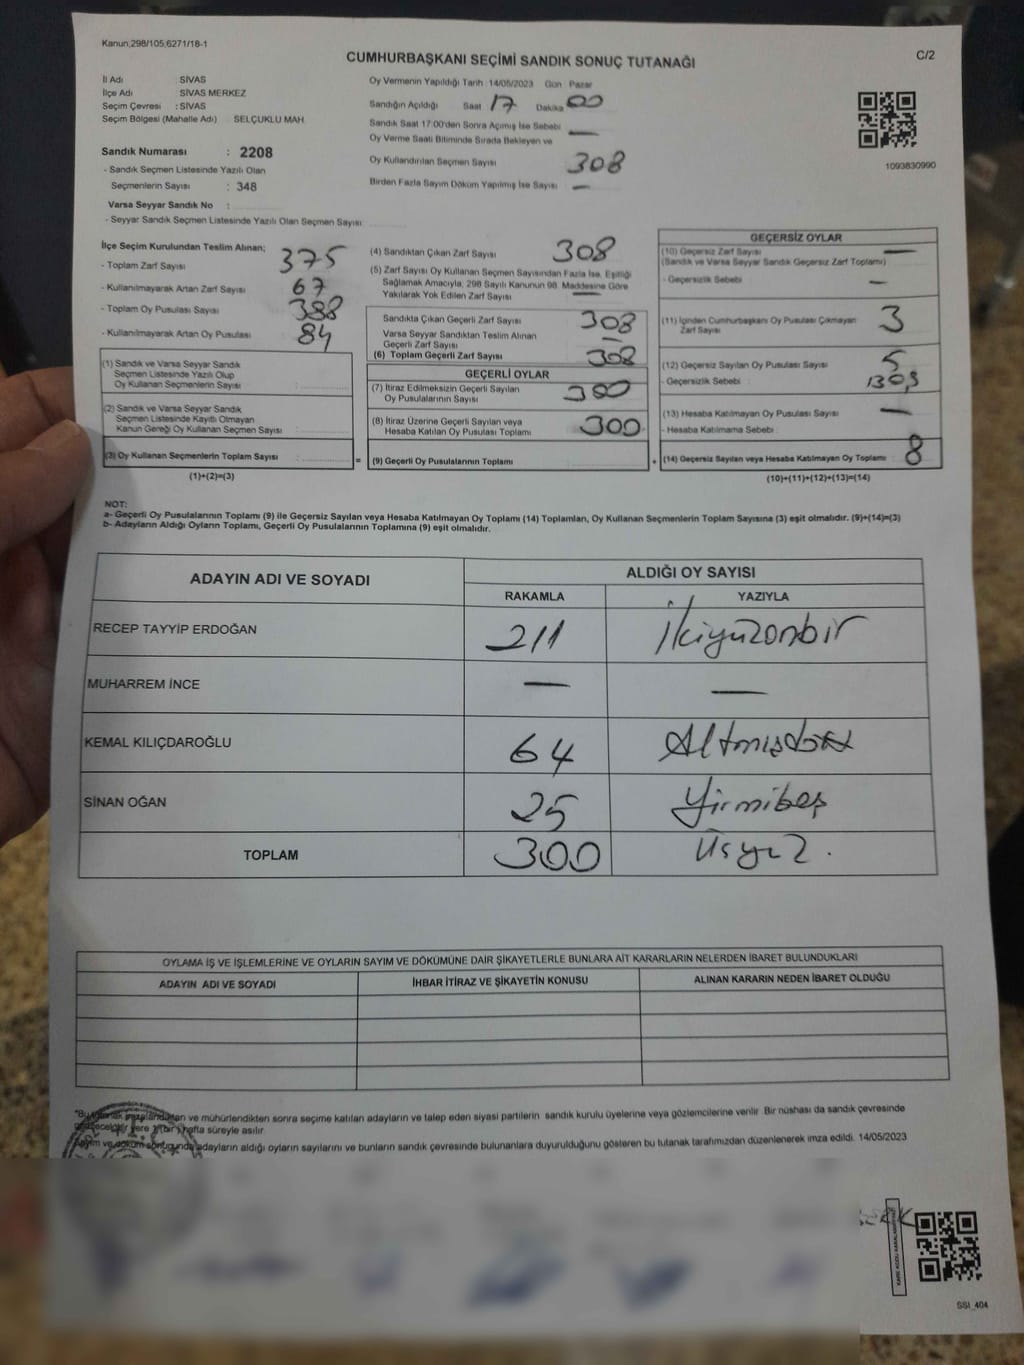 Kanun,298/105,6271/18-1
C/2
CUMHURBAŞKANI SEÇİMİ SANDIK SONUÇ TUTANAĞI
İl Adı : SİVAS
İlçe Adı : SİVAS MERKEZ
Seçim Çevresi : SİVAS
Seçim Bölgesi (Mahalle Adı) SELÇUKLU MAH.
Sandık Numarası : 2208
- Sandık Seçmen Listesinde Yazılı Olan
Seçmenlerin Sayısı : 348
Varsa Seyyar Sandık No :
- Seyyar Sandık Seçmen Listesinde Yazılı Olan Seçmen Sayısı:
Oy Vermenin Yapıldığı Tarih :14/05/2023 Gün Pazar
Sandığın Açıldığı Saat 17 Dakika 00
Sandık Saat 17:00'den Sonra Açımış İse Sebebi —
Oy Verme Saati Bitiminde Sırada Bekleyen ve
Oy Kullandırılan Seçmen Sayısı 308
Birden Fazla Sayım Döküm Yapılmış İse Sayısı —
1093830990
İlçe Seçim Kurulundan Teslim Alınan;
- Toplam Zarf Sayısı 375
- Kullanılmayarak Artan Zarf Sayısı 67
- Toplam Oy Pusulası Sayısı 388
- Kullanılmayarak Artan Oy Pusulası 84
(1) Sandık ve Varsa Seyyar Sandık
Seçmen Listesinde Yazılı Olup
Oy Kullanan Seçmenlerin Sayısı :
(2) Sandık ve Varsa Seyyar Sandık
Seçmen Listesinde Kayıtlı Olmayan
Kanun Gereği Oy Kullanan Seçmen Sayısı :
(3) Oy Kullanan Seçmenlerin Toplam Sayısı :
(1)+(2)=(3)
(4) Sandıktan Çıkan Zarf Sayısı 308
(5) Zarf Sayısı Oy Kullanan Seçmen Sayısından Fazla İse, Eşitliği
Sağlamak Amacıyla, 298 Sayılı Kanunun 98. Maddesine Göre
Yakılarak Yok Edilen Zarf Sayısı —
Sandıkta Çıkan Geçerli Zarf Sayısı 308
Varsa Seyyar Sandıktan Teslim Alınan
Geçerli Zarf Sayısı —
(6) Toplam Geçerli Zarf Sayısı 308
GEÇERLİ OYLAR
(7) İtiraz Edilmeksizin Geçerli Sayılan
Oy Pusulalarının Sayısı 300
(8) İtiraz Üzerine Geçerli Sayılan veya
Hesaba Katılan Oy Pusulası Toplamı 300
= (9) Geçerli Oy Pusulalarının Toplamı
GEÇERSİZ OYLAR
(10) Geçersiz Zarf Sayısı —
(Sandık ve Varsa Seyyar Sandık Geçersiz Zarf Toplamı)
- Geçersizlik Sebebi —
(11) İçinden Cumhurbaşkanı Oy Pusulası Çıkmayan
Zarf Sayısı 3
(12) Geçersiz Sayılan Oy Pusulası Sayısı 5
- Geçersizlik Sebebi :
(13) Hesaba Katılmayan Oy Pusulası Sayısı —
- Hesaba Katılmama Sebebi :
+ (14) Geçersiz Sayılan veya Hesaba Katılmayan Oy Toplamı : 8
(10)+(11)+(12)+(13)=(14)
NOT:
a- Geçerli Oy Pusulalarının Toplamı (9) ile Geçersiz Sayılan veya Hesaba Katılmayan Oy Toplamı (14) Toplamları, Oy Kullanan Seçmenlerin Toplam Sayısına (3) eşit olmalıdır. (9)+(14)=(3)
b- Adayların Aldığı Oyların Toplamı, Geçerli Oy Pusulalarının Toplamına (9) eşit olmalıdır.
ADAYIN ADI VE SOYADI
ALDIĞI OY SAYISI
RAKAMLA YAZIYLA
RECEP TAYYİP ERDOĞAN 211 İkiyüzonbir
MUHARREM İNCE — —
KEMAL KILIÇDAROĞLU 64 Altmışdört
SİNAN OĞAN 25 Yirmibeş
TOPLAM 300 Üçyüz.
OYLAMA İŞ VE İŞLEMLERİNE VE OYLARIN SAYIM VE DÖKÜMÜNE DAİR ŞİKAYETLERLE BUNLARA AİT KARARLARIN NELERDEN İBARET BULUNDUKLARI
ADAYIN ADI VE SOYADI İHBAR İTİRAZ VE ŞİKAYETİN KONUSU ALINAN KARARIN NEDEN İBARET OLDUĞU
ve mühürlendikten sonra seçime katılan adayların ve talep eden siyasi partilerin sandık kurulu üyelerine veya gözlemcilerine verilir. Bir nüshası da sandık çevresinde
yere 1 (bir) hafta süreyle asılır.
adayların aldığı oyların sayılarını ve bunların sandık çevresinde bulunanlara duyurulduğunu gösteren bu tutanak tarafımızdan düzenlenerek imza edildi. 14/05/2023
SSI_404